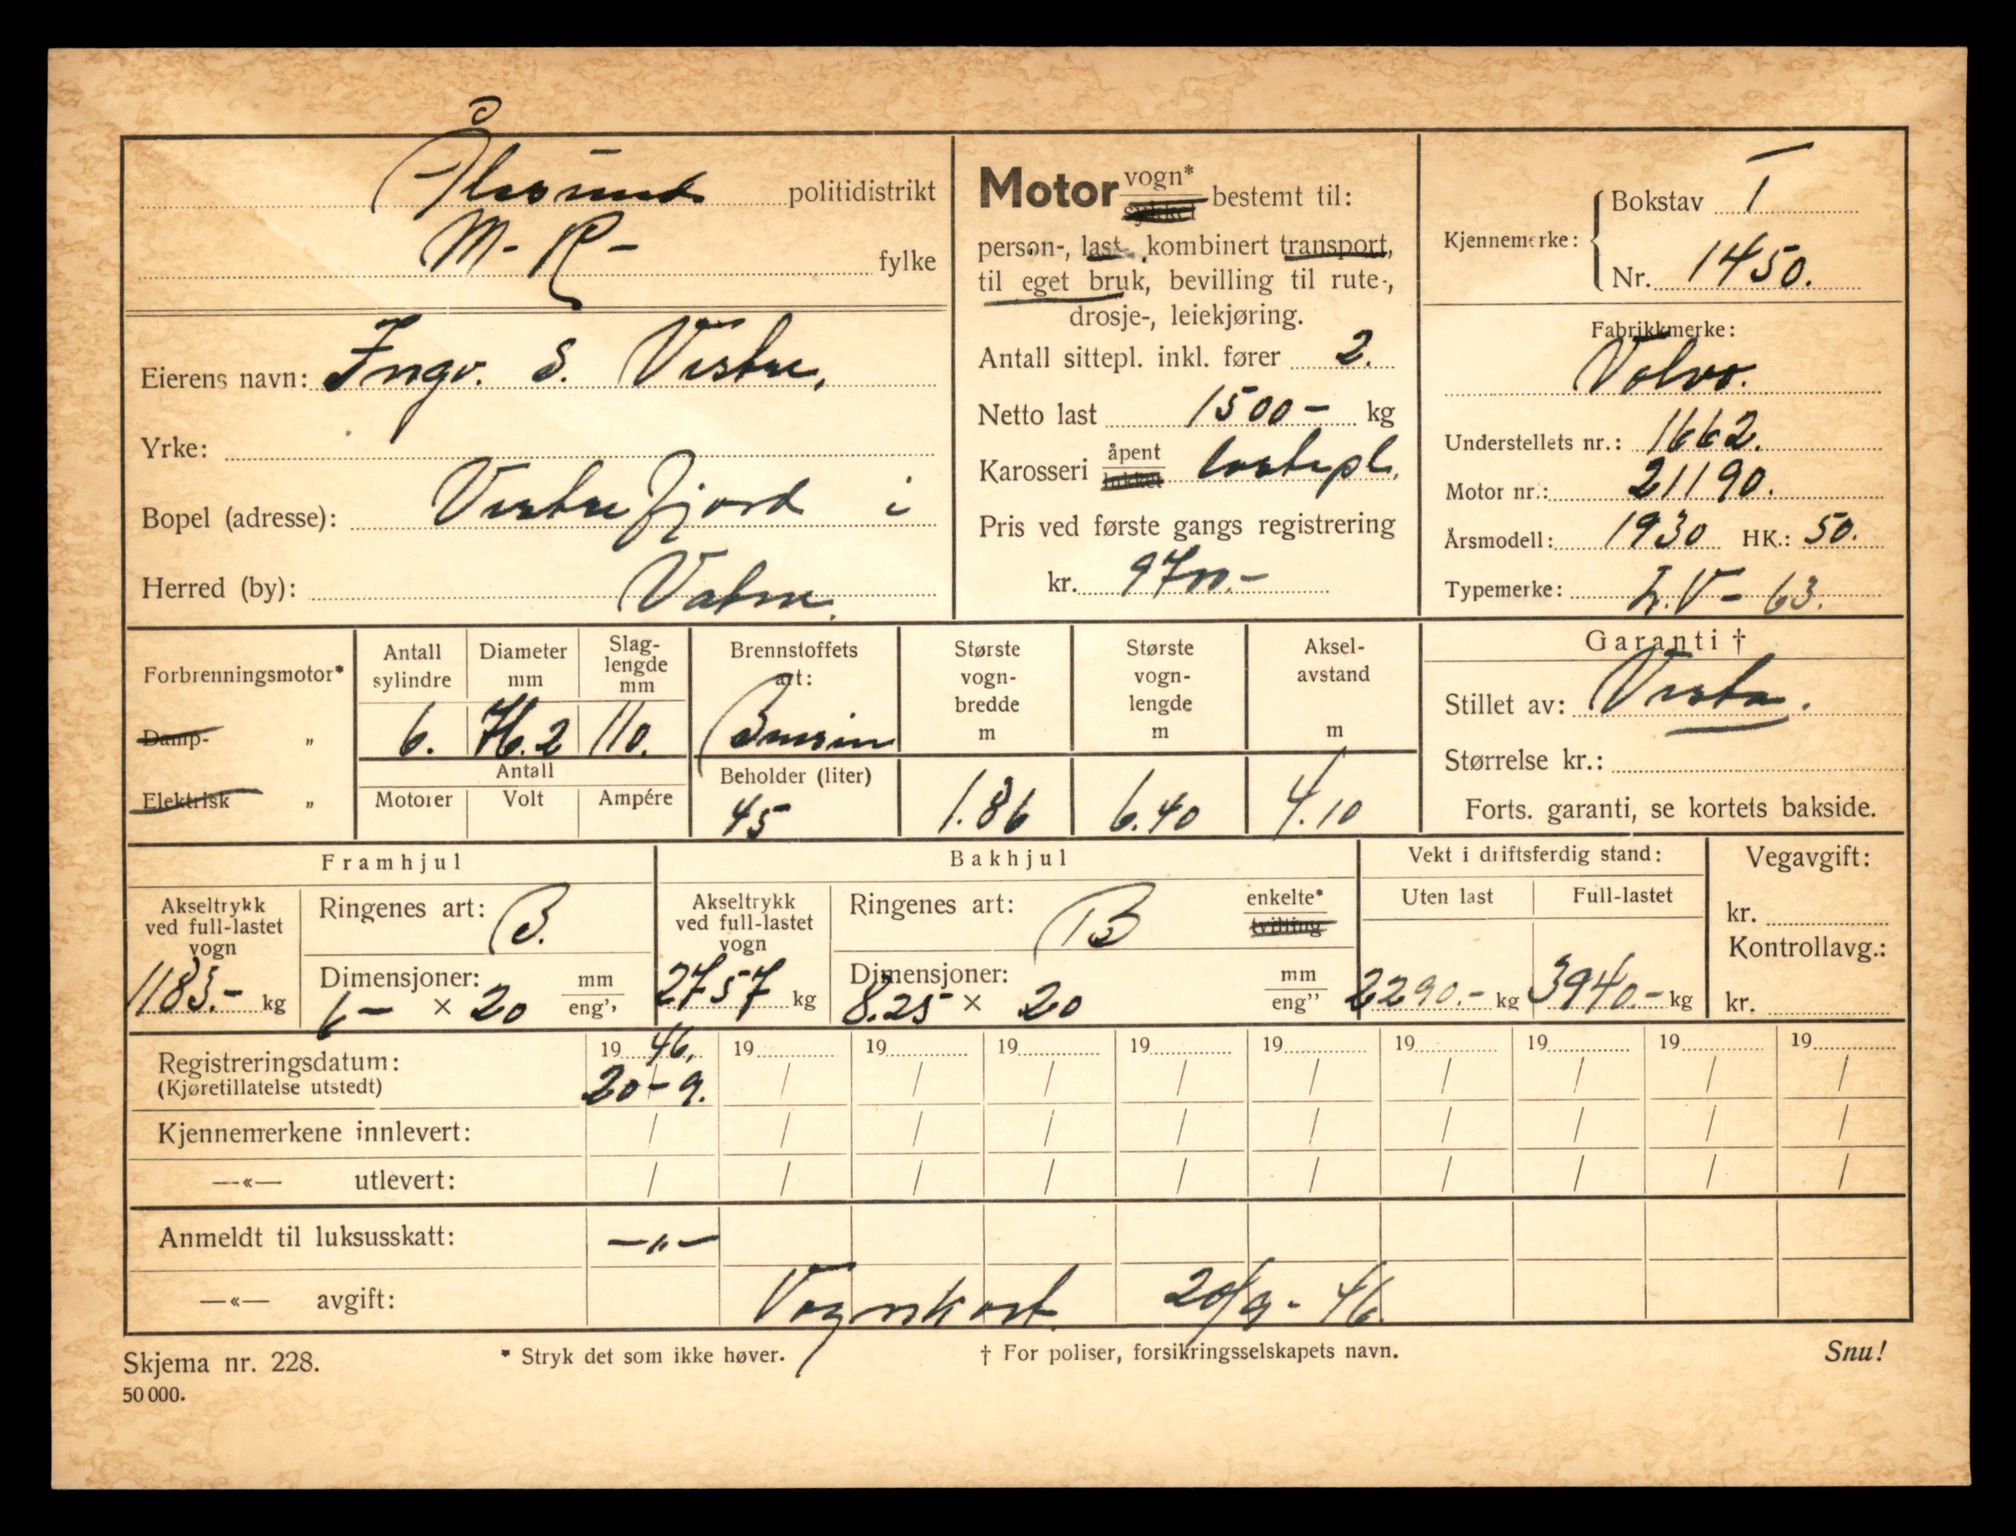 Ålesund politidistrikt
M-R- fylke
Eierens navn: Ingv. S. Vestre.
Yrke:
Bopel (adresse): Vestrefjord i
Herred (by): Vatne.
Motor vogn* sykkel bestemt til:
person-, last-, kombinert transport,
til eget bruk, bevilling til rute-,
drosje-, leiekjøring.
Antall sittepl. inkl. fører 2.
Netto last 1500- kg
Karosseri åpent lukket lastepl.
Pris ved første gangs registrering
kr. 9700.-
Kjennemerke: Bokstav T
Nr. 1450.
Fabrikkmerke:
Volvo.
Understellets nr.: 1662.
Motor nr.: 21190.
Årsmodell: 1930 HK.: 50.
Typemerke: L.V-63.
Forbrenningsmotor*
Damp- „
Elektrisk „
Antall sylindre 6.
Diameter mm 76.2
Slag-lengde mm 110.
Antall
Motorer Volt Ampére
Brennstoffets art: Bensin
Beholder (liter) 45
Største vogn-bredde m 1.86
Største vogn-lengde m 6.40
Aksel-avstand m 4.10
Garanti †
Stillet av: Vesta.
Størrelse kr.:
Forts. garanti, se kortets bakside.
Framhjul
Akseltrykk ved full-lastet vogn 1183.- kg
Ringenes art: B.
Dimensjoner: 6- × 20 mm eng''
Bakhjul
Akseltrykk ved full-lastet vogn 2757 kg
Ringenes art: B enkelte* tvilling
Dimensjoner: 8.25 × 20 mm eng''
Vekt i driftsferdig stand:
Uten last 2290.- kg
Full-lastet 3940.- kg
Vegavgift:
kr.
Kontrollavg.:
kr.
Registreringsdatum: 1946. 19 19 19 19 19 19 19 19 19
(Kjøretillatelse utstedt) 20-9. / / / / / / / / /
Kjennemerkene innlevert: / / / / / / / / / /
—«— utlevert: / / / / / / / / / /
Anmeldt til luksusskatt: —„—
—«— avgift: Vognkort 20/9-46
Skjema nr. 228. * Stryk det som ikke høver. † For poliser, forsikringsselskapets navn. Snu!
50 000.